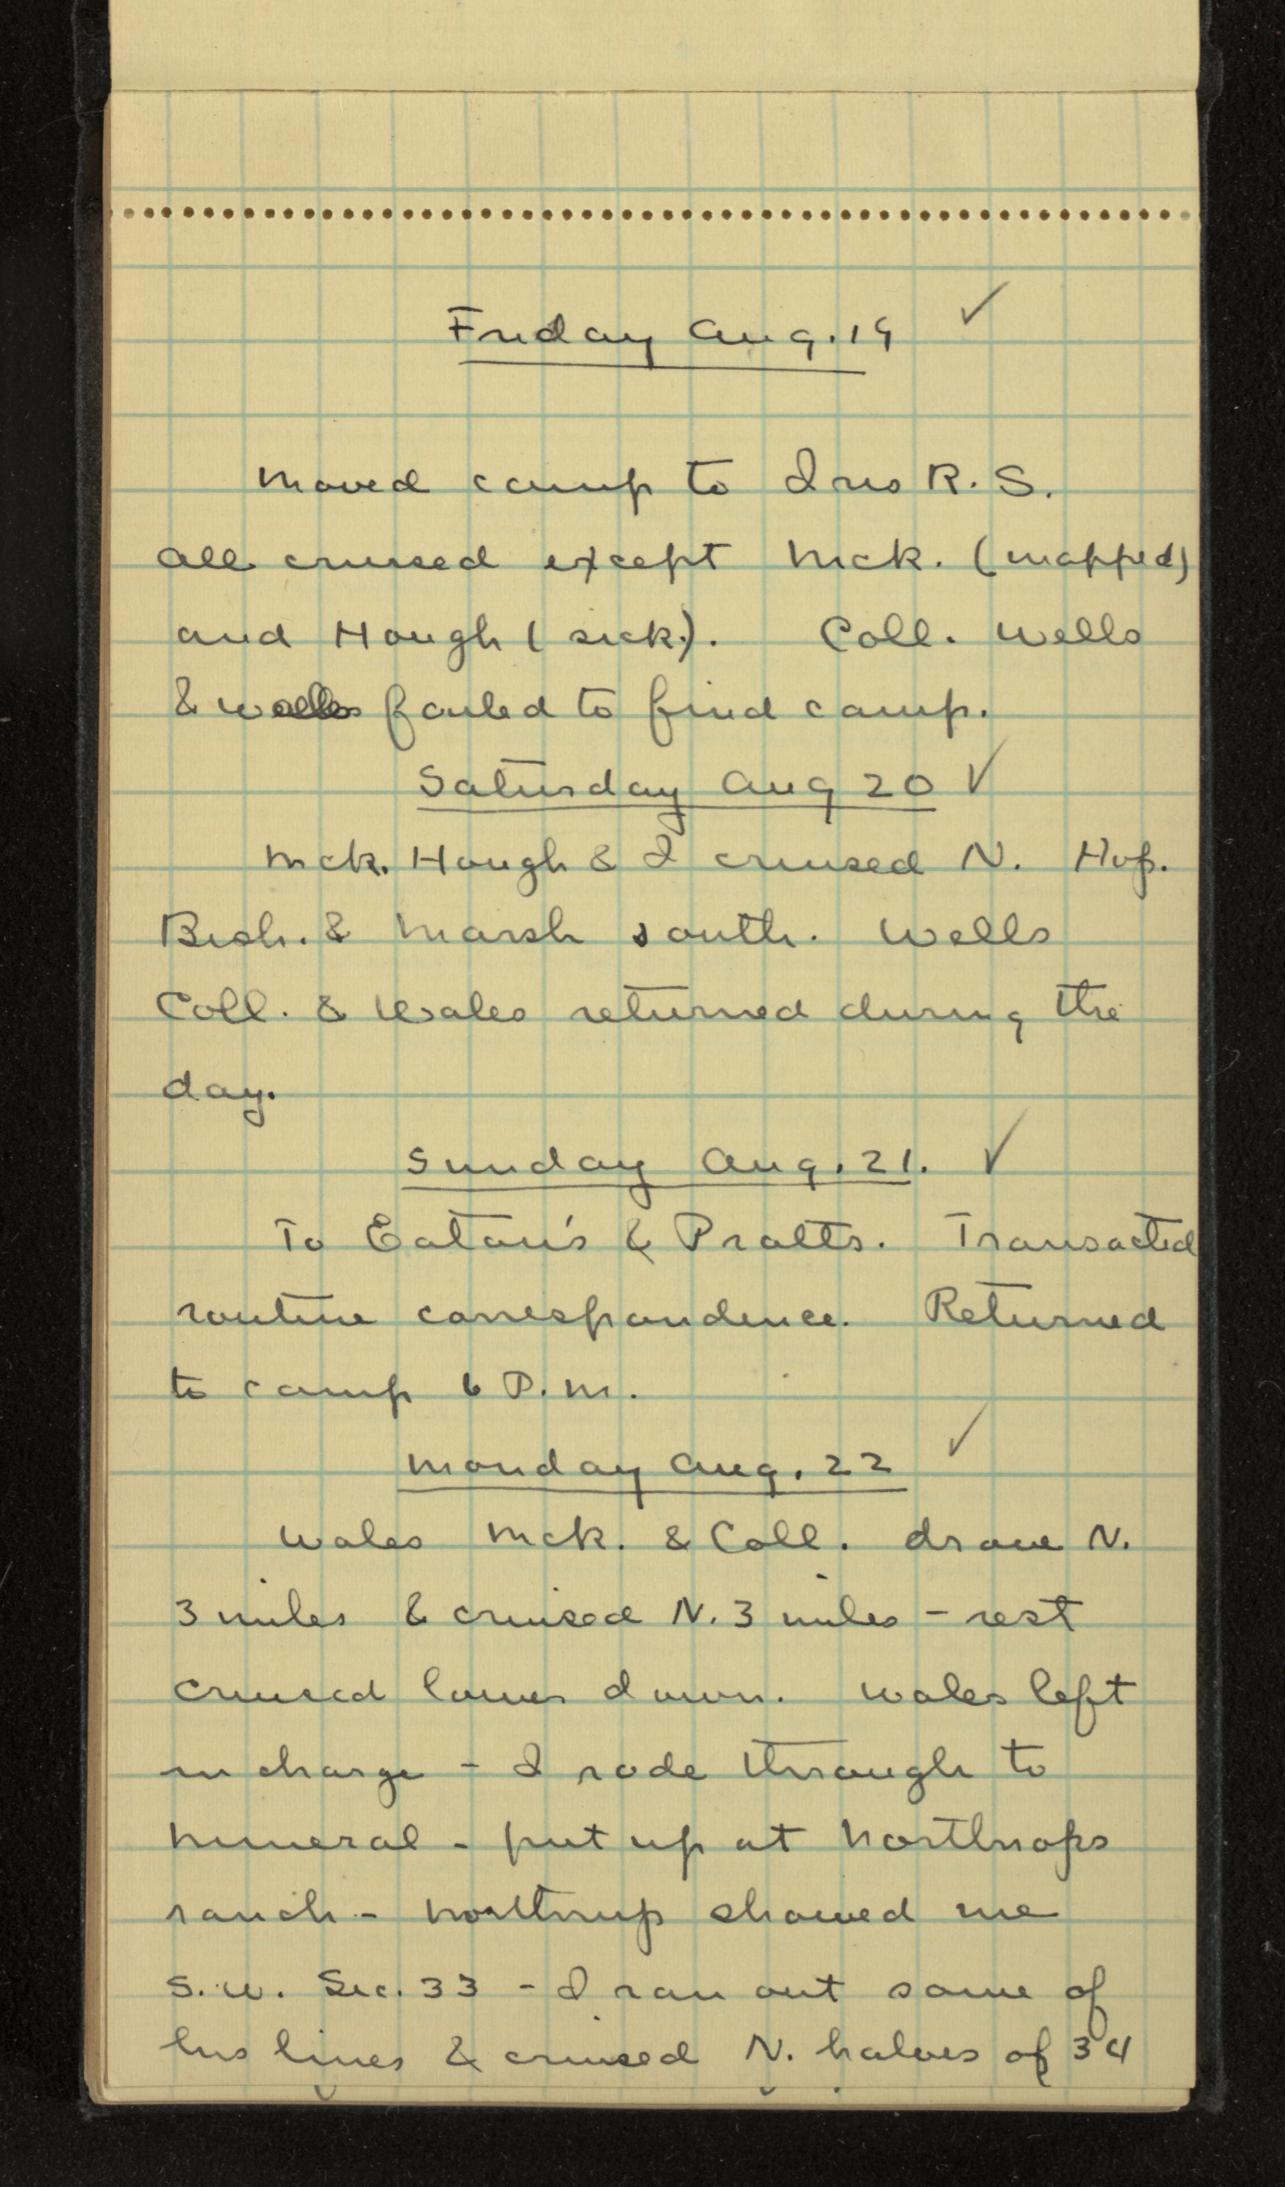 Friday Aug. 19 ✓
Moved camp to Ino R.S.
All cruised except McK. (mapped)
and Hough (sick). Coll. Wells
& Wales failed to find camp.
Saturday Aug 20 ✓
McK. Hough & I cruised N. Huf.
Bish. & Marsh south. Wells
Coll. & Wales returned during the
day.
Sunday Aug. 21. ✓
To Eaton's & Pratts. Transacted
routine correspondence. Returned
to camp 6 P.M.
Monday Aug. 22 ✓
Wales McK. & Coll. drove N.
3 miles & cruised N. 3 miles - rest
cruised lower down. Wales left
in charge - I rode through to
Mineral - put up at Northrops
ranch - Northrup showed me
S.W. Sec. 33 - I ran out some of
his lines & cruised N. halves of 34